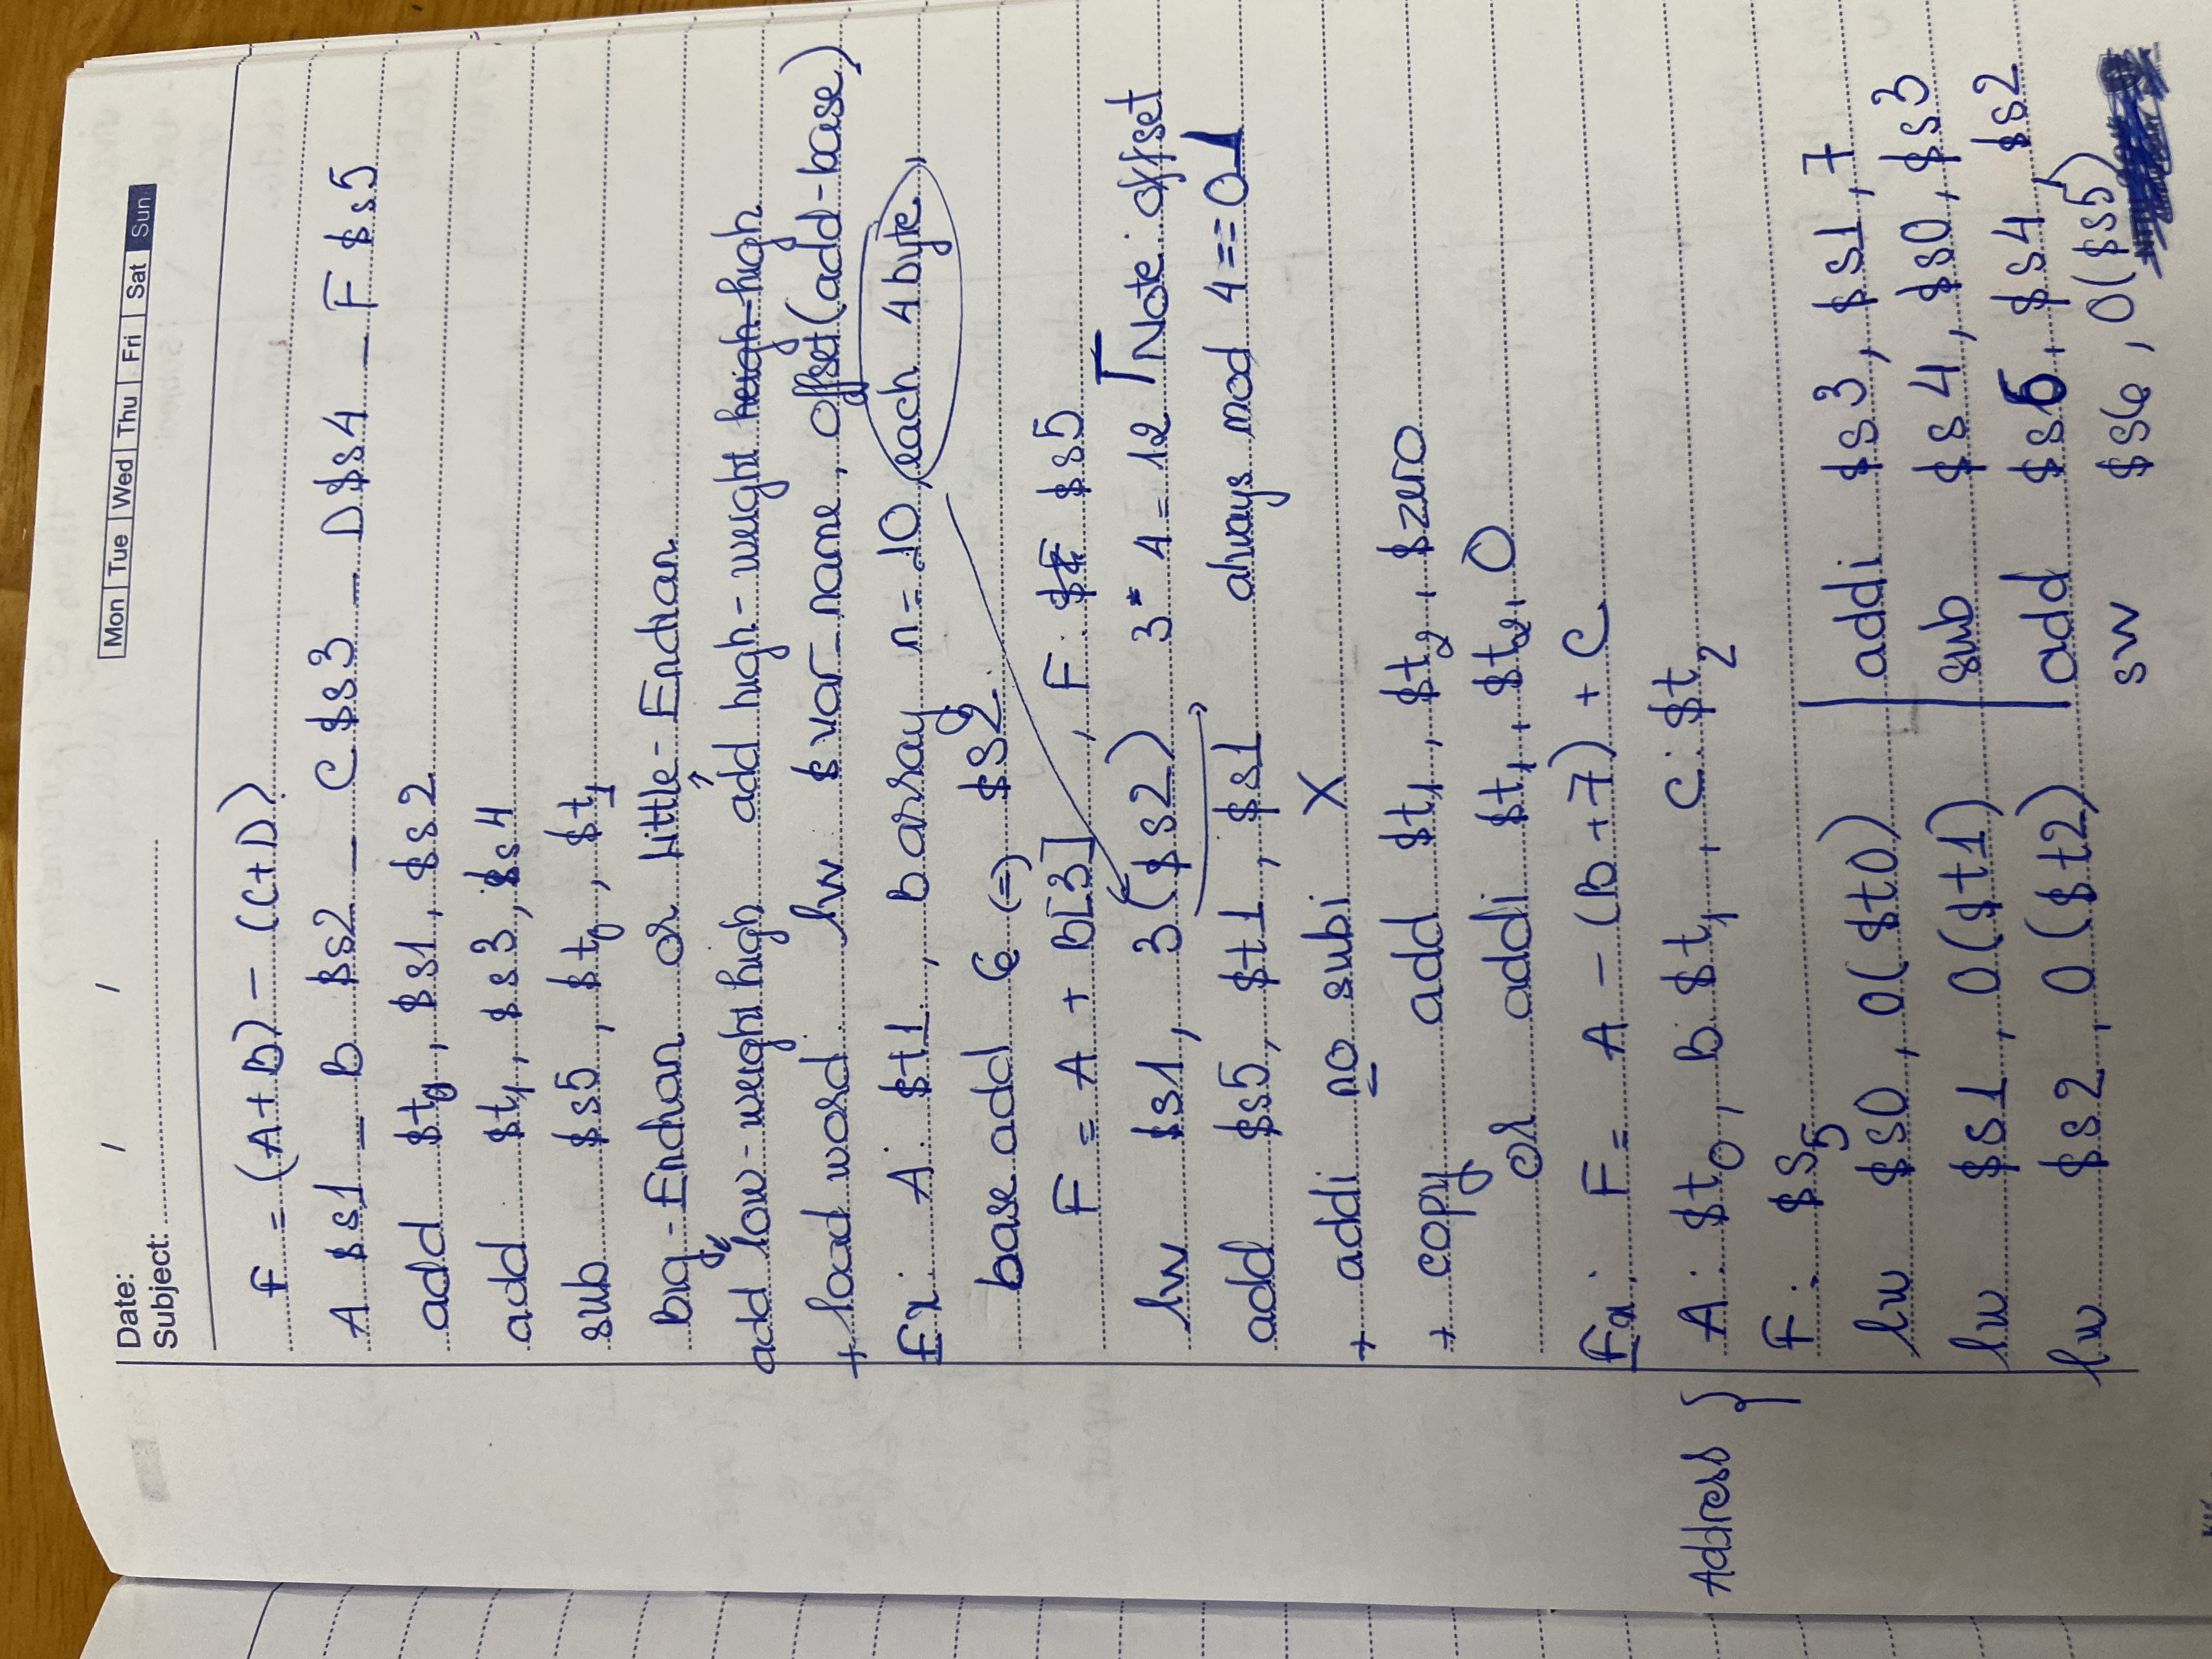 Date: / /
Subject:
Mon Tue Wed Thu Fri Sat Sun
F = (A+B) - (C+D)
A $s1 - B $s2 - C $s3 - D $s4 - F $s5
add $t0, $s1, $s2
add $t1, $s3, $s4
sub $s5, $t0, $t1
Big-Endian or Little-Endian
add low-weight high add high-weight heigh high
+ load word: lw $var_name, offset(add-base)
Ex: A: $t1, B array n=10, each 4 byte,
base add € (=) $s2.
F = A + B[3] , F: $F $s5
lw $s1, 3($s2) 3*4=12 Note: offset
add $s5, $t1, $s1 always mod 4==0
+ addi no subi X
+ copy add $t1, $t2, $zero
or addi $t1, $t2, 0
Ex: F = A - (B+7) + C
Address { A: $t0, B: $t1, C: $t2
F: $s5
lw $s0, 0($t0)
lw $s1, 0($t1)
lw $s2, 0($t2)
addi $s3, $s1, 7
sub $s4, $s0, $s3
add $s6, $s4, $s2
sw $s6, 0($s5)